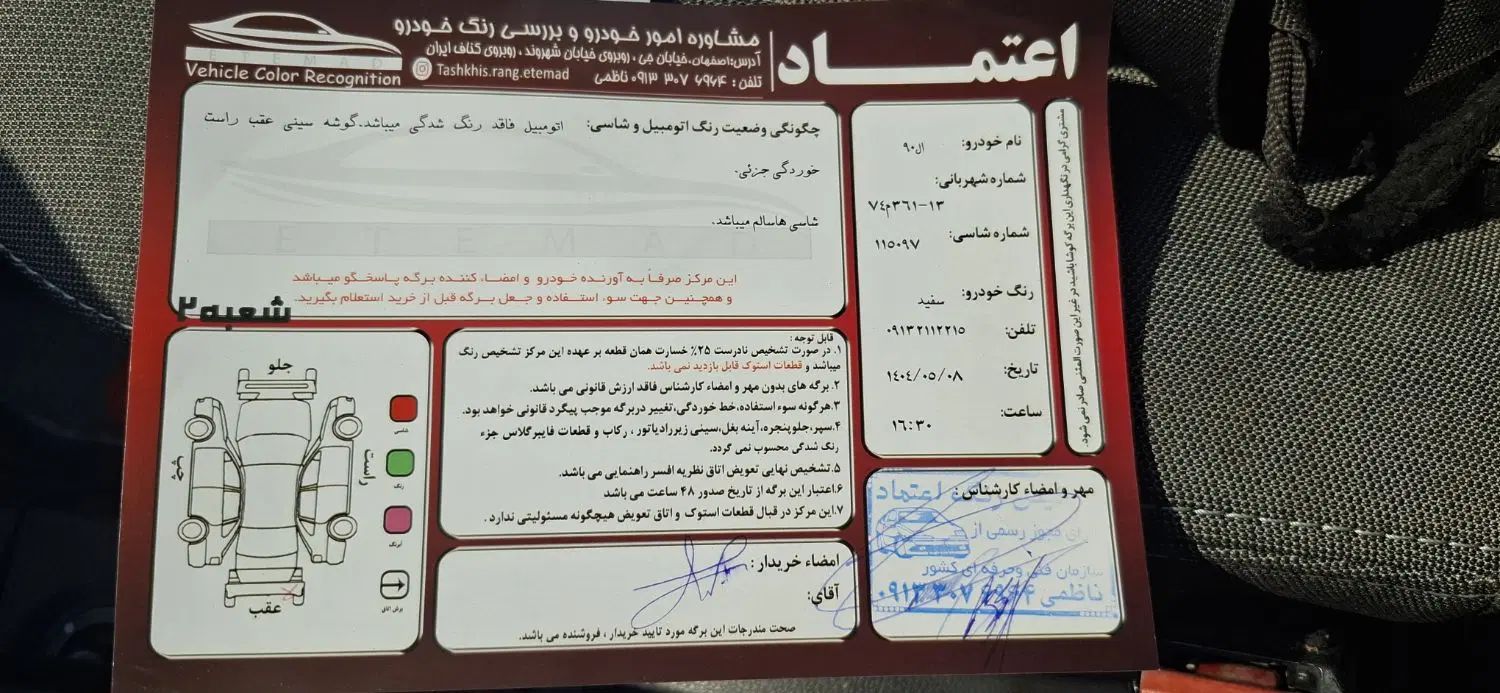 اعتمـــاد
مشاوره امور خودرو و بررسی رنگ خودرو
آدرس:اصفهان،خیابان جی، روبروی خیابان شهروند، روبروی کناف ایران
تلفن: ۰۹۱۳ ۳۰۷ ۶۹۶۴ ناظمی
Tashkhis.rang.etemad
ETEMAD
Vehicle Color Recognition
مشتری گرامی در نگهداری این برگه کوشا باشید در غیر این صورت المثنی صادر نمی شود.
نام خودرو: ال۹۰
شماره شهربانی:
۷۴م۳۶۱-۱۳
شماره شاسی:
۱۱۵۰۹۷
رنگ خودرو: سفید
تلفن: ۰۹۱۳۲۱۱۲۲۱۵
تاریخ: ۱۴۰۴/۰۵/۰۸
ساعت: ۱۶:۳۰
چگونگی وضعیت رنگ اتومبیل و شاسی: اتومبیل فاقد رنگ شدگی میباشد.گوشه سینی عقب راست
خوردگی جزئی.
شاسی هاسالم میباشد.
ETEMAD
این مرکز صرفاً به آورنده خودرو و امضاء کننده برگه پاسخگو میباشد
و همچنین جهت سوء استفاده و جعل برگه قبل از خرید استعلام بگیرید.
شعبه۲
قابل توجه:
۱. در صورت تشخیص نادرست ۲۵٪ خسارت همان قطعه بر عهده این مرکز تشخیص رنگ
میباشد و قطعات استوک قابل بازدید نمی باشد.
۲. برگه های بدون مهر و امضاء کارشناس فاقد ارزش قانونی می باشد.
۳.هرگونه سوء استفاده،خط خوردگی،تغییر دربرگه موجب پیگرد قانونی خواهد بود.
۴.سپر،جلوپنجره،آینه بغل،سینی زیررادیاتور، رکاب و قطعات فایبرگلاس جزء
رنگ شدگی محسوب نمی گردد.
۵.تشخیص نهایی تعویض اتاق نظریه افسر راهنمایی می باشد.
۶.اعتبار این برگه از تاریخ صدور ۴۸ ساعت می باشد
۷.این مرکز در قبال قطعات استوک و اتاق تعویض هیچگونه مسئولیتی ندارد.
جلو
راست
چپ
عقب
شاسی
رنگ
آبرنگ
برش اتاق
امضاء خریدار:
آقای:
صحت مندرجات این برگه مورد تایید خریدار، فروشنده می باشد.
مهر و امضاء کارشناس:
اعتماد
مجوز رسمی از
سازمان فنی وحرفه ای کشور
ناظمی ۰۹۱۳۳۰۷۶۹۶۴